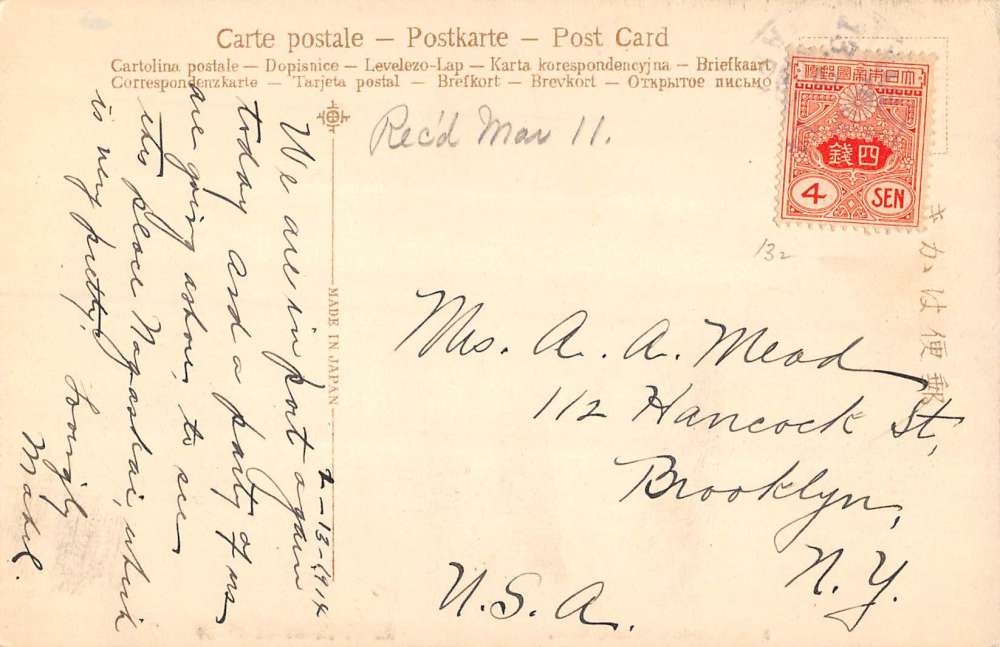 Carte postale — Postkarte — Post Card
Cartolina postale — Dopisnice — Levelezo-Lap — Karta korespondencyjna — Briefkaart
Correspondenzkarte — Tarjeta postal — Brefkort — Brevkort — Открытое письмо
Rec'd Mar 11.
大日本帝國郵便
四錢
4 SEN
132
郵便はかき
MADE IN JAPAN
2-13-1914
We are in port again
today and a party of us
are going ashore, to see
this place Nagasaki, which
is very pretty.
Lovingly
Mabel.
Mrs. A. A. Mead
112 Hancock St,
Brooklyn,
N.Y.
U.S.A.